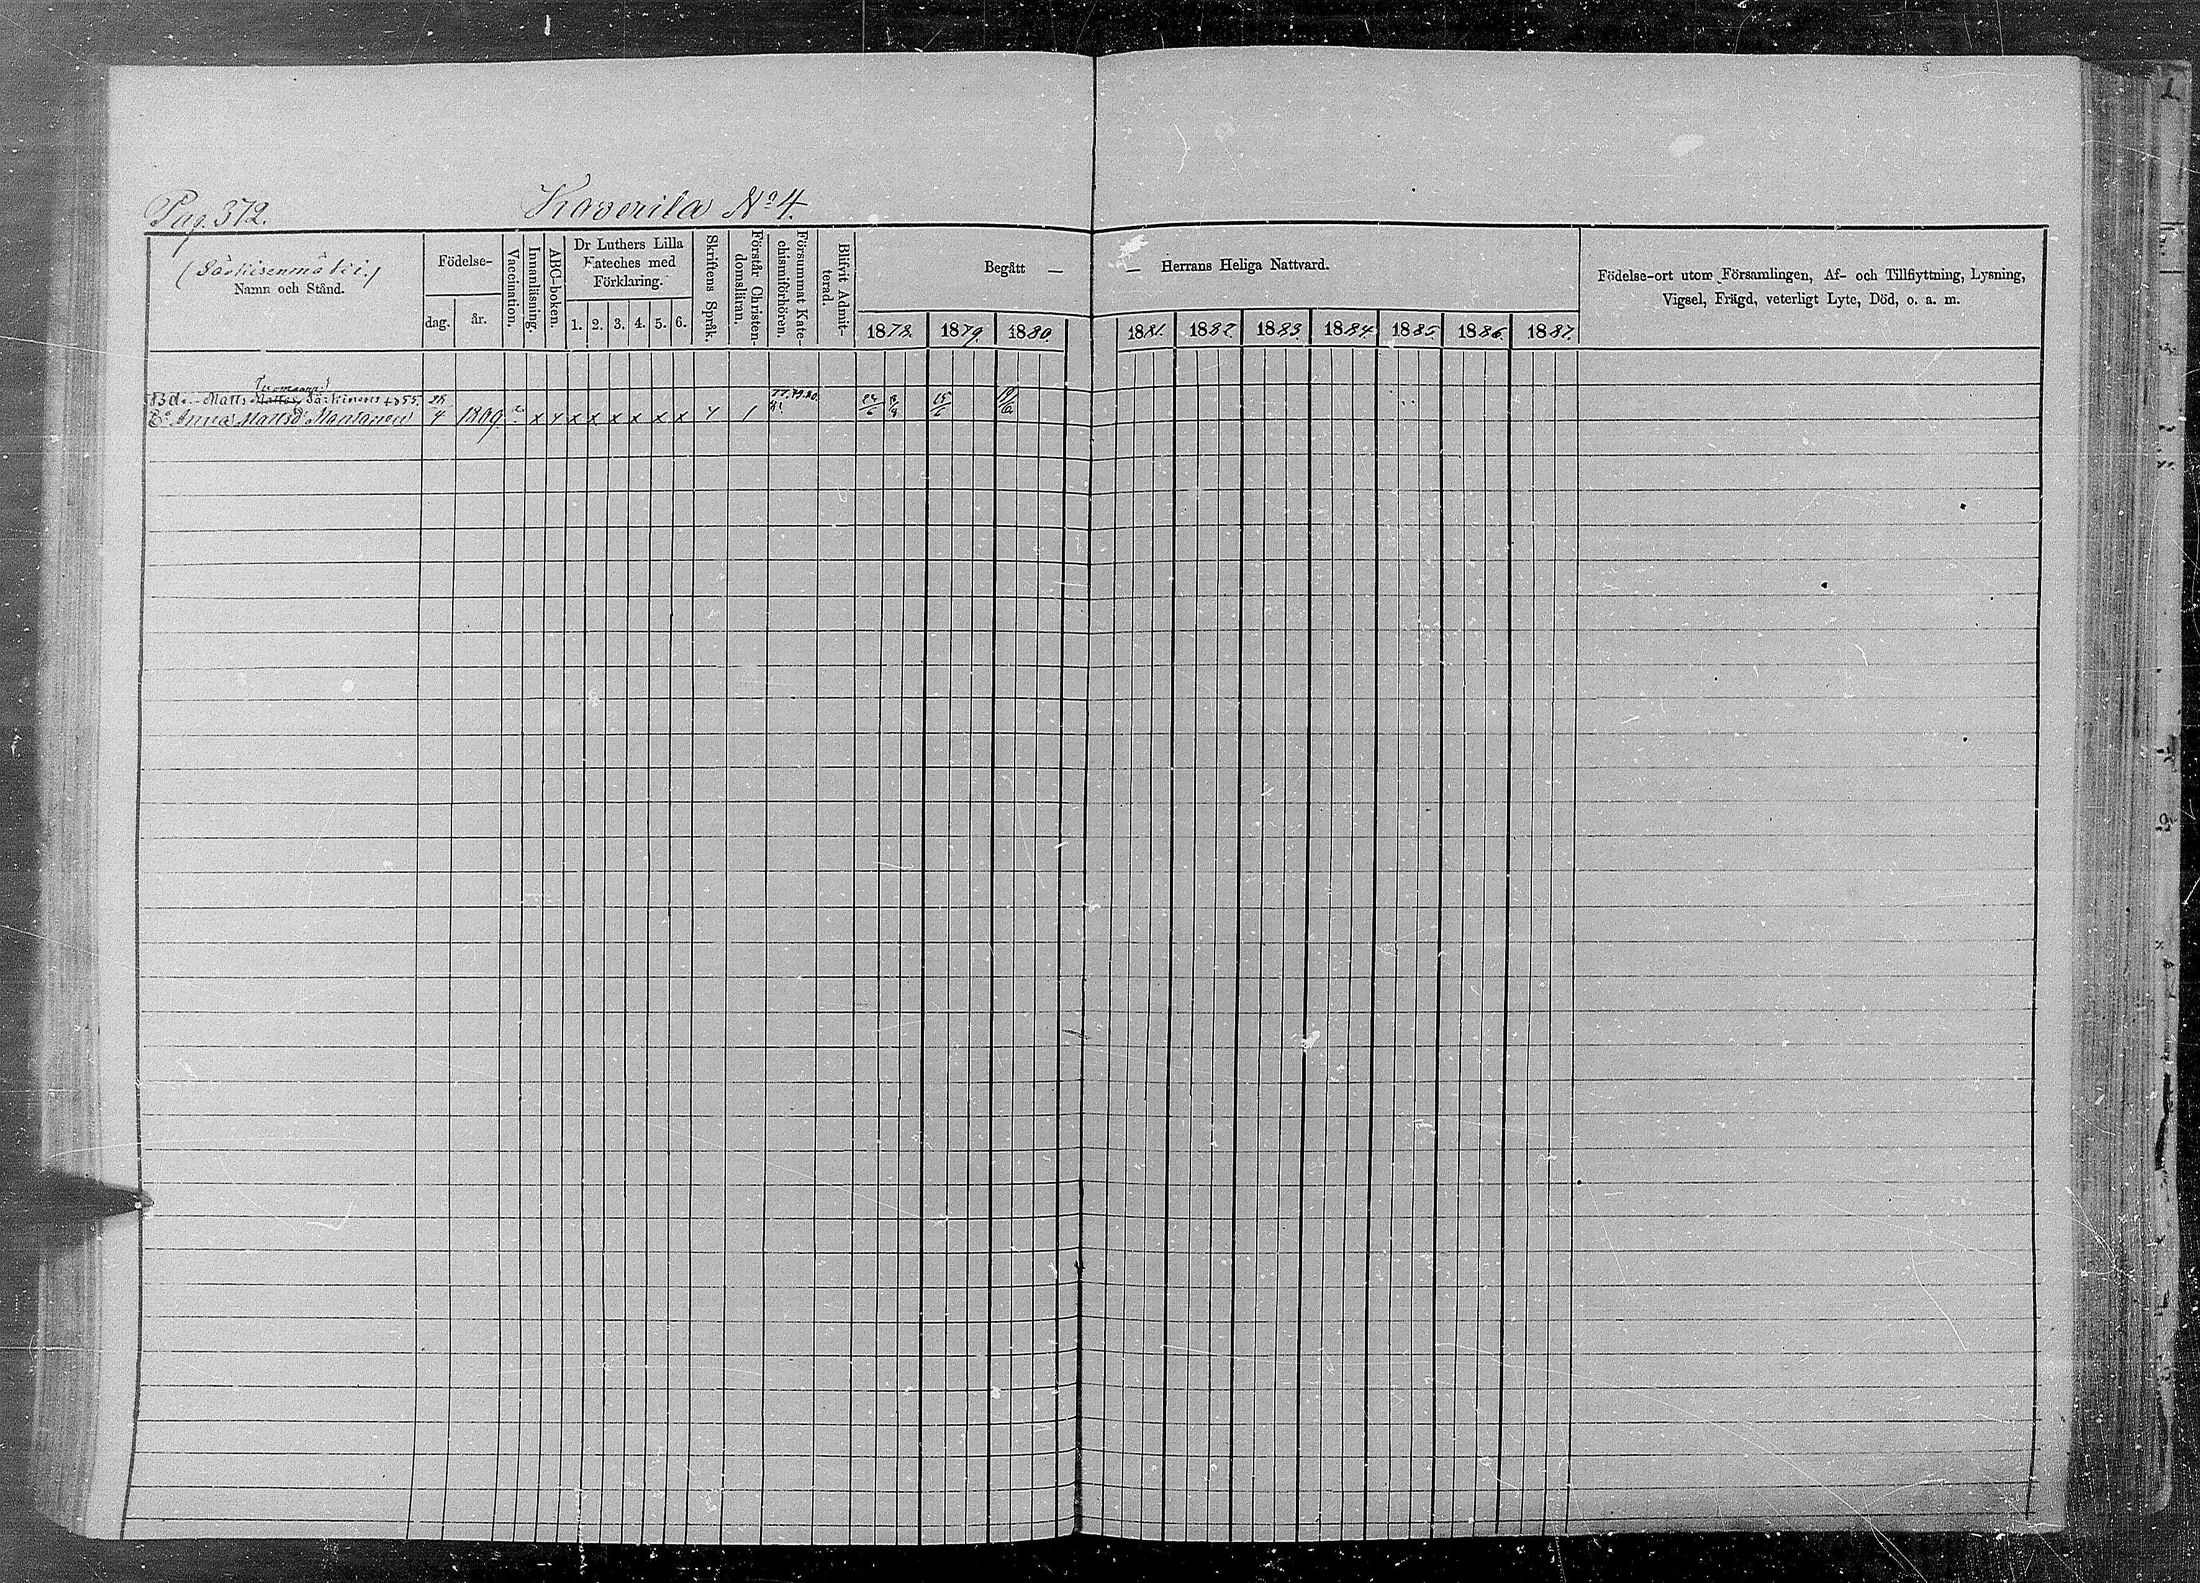 Pag. 372.
Koverila No 4.
(Säkisenmäki.)
Namn och Stånd.
Födelse-
dag.
år.
Vaccination.
Innanläsning.
ABC-boken.
Dr Luthers Lilla
Kateches med
Förklaring.
1. 2. 3. 4. 5. 6.
Skriftens Språk.
Förstår Christen-
domsläran.
Försummat Kate-
chismiförhören.
Blifvit Admit-
terad.
Begått —
— Herrans Heliga Nattvard.
1878. 1879. 1880. 1881. 1882. 1883. 1884. 1885. 1886. 1887.
Födelse-ort utom Församlingen, Af- och Tillflyttning, Lysning,
Vigsel, Frägd, veterligt Lyte, Död, o. a. m.
Bd. Matts Säkinens + 855.
Anna Mattsdr Mantanen 4 1809 x x x x x x x x 1
77.79.80.
24/6 15/6